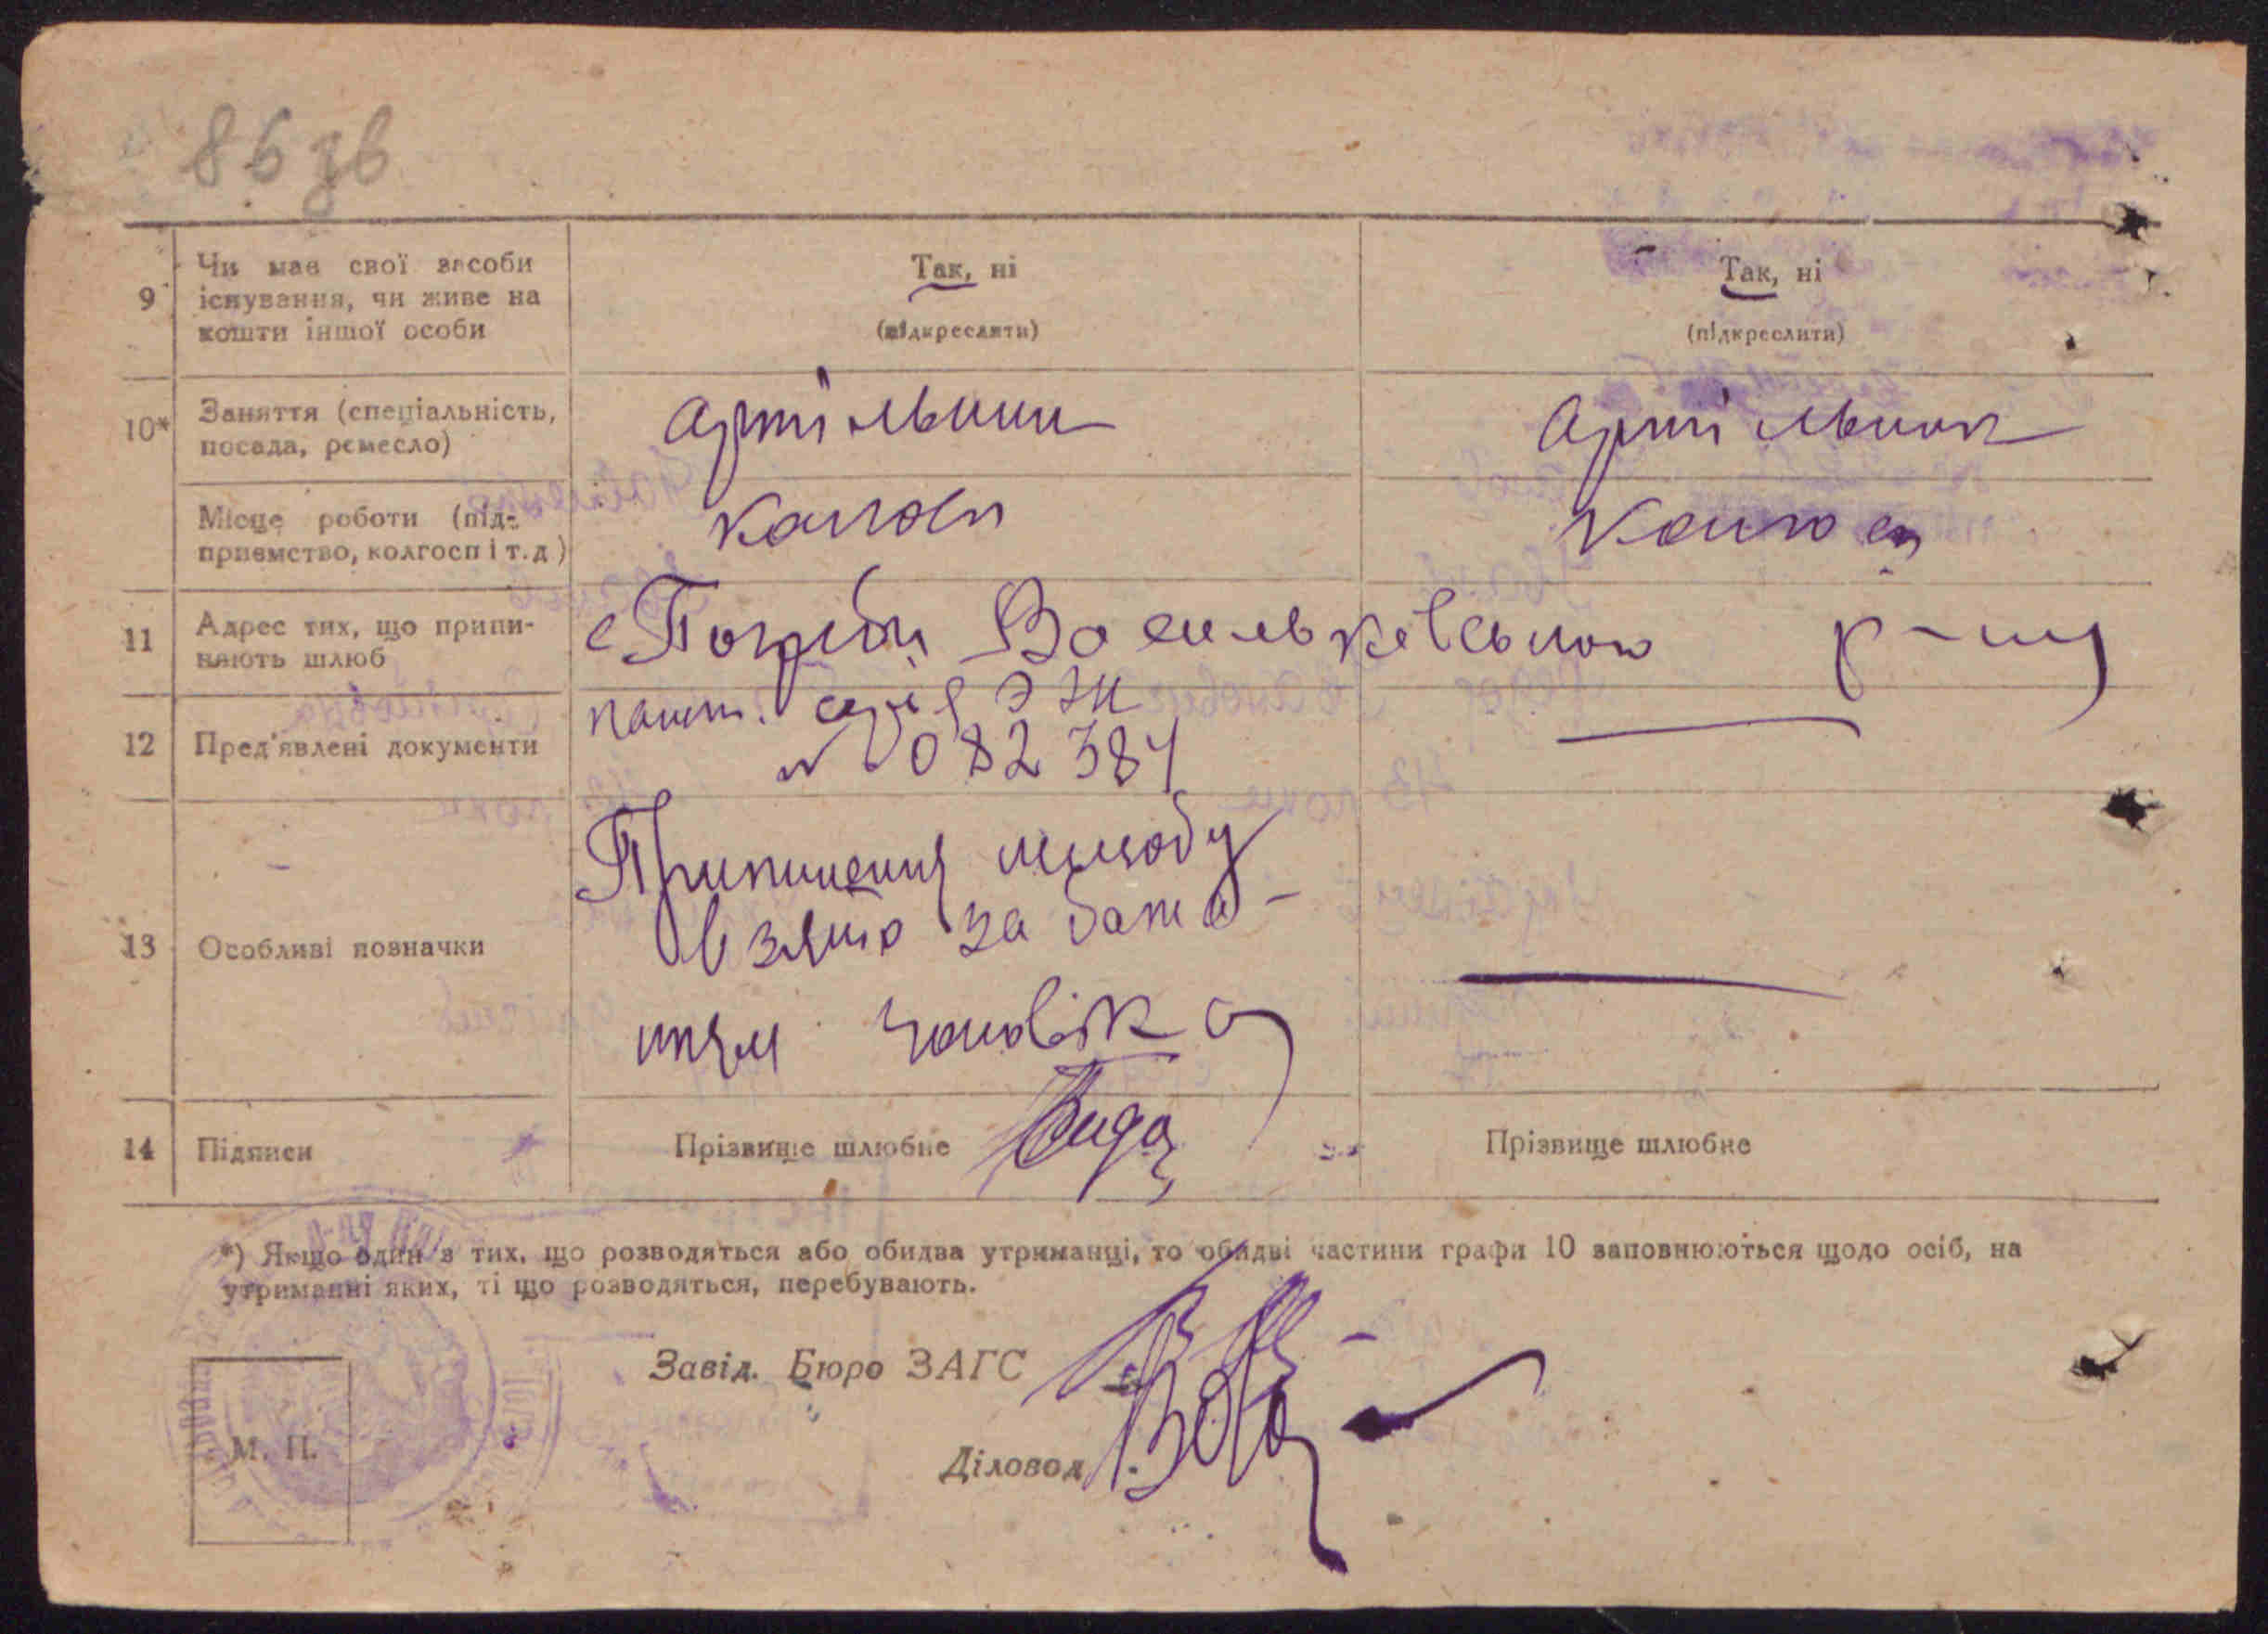 86 зв
9 Чи має свої засоби існування, чи живе на кошти іншої особи
Так, ні
(підкреслити)
Так, ні
(підкреслити)
10* Заняття (спеціальність, посада, ремесло)
Артільник
Артільник
Місце роботи (підприємство, колгосп і т.д)
11 Адрес тих, що припиняють шлюб
с Погреби Васильківського р-ну
12 Пред'явлені документи
пашп. серія ЭЖ
№ 082384
13 Особливі позначки
Припинення шлюбу
взято за бажа-
ням чоловіка
14 Підписи
Прізвище шлюбне
Прізвище шлюбне
*) Якщо один з тих, що розводяться або обидва утриманці, то обидві частини графи 10 заповнюються щодо осіб, на
утриманні яких, ті що розводяться, перебувають.
Завід. Бюро ЗАГС
Діловод
М. П.